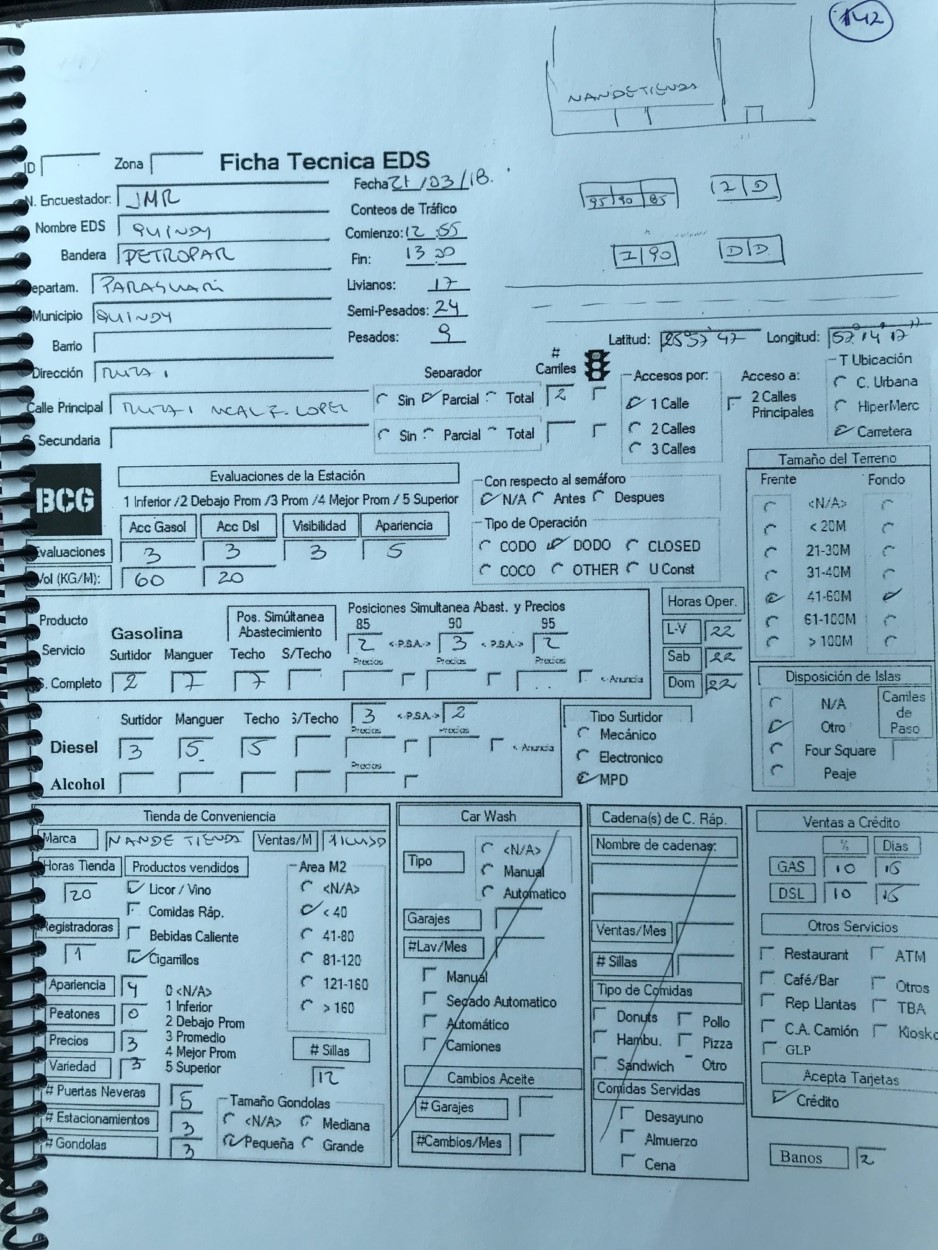 142
NANDETIENDA
ID Zona Ficha Tecnica EDS
N. Encuestador: JMR
Fecha 21/03/18.
95 90 85
2 D
Nombre EDS QUINDY
Conteos de Tráfico
Bandera PETROPAR
Comienzo: 12 55
Fin: 13 20
2 90
D D
Departam. PARAGUARI
Livianos: 17
Municipio QUINDY
Semi-Pesados: 24
Barrio
Pesados: 9
Latitud: Longitud:
Dirección RUTA 1
Separador
# Carriles
Accesos por:
Acceso a:
T Ubicación
Calle Principal RUTA 1 MCAL F. LOPEZ
Sin Parcial Total 2
1 Calle
2 Calles
3 Calles
2 Calles Principales
C. Urbana
HiperMerc
Carretera
Secundaria
Sin Parcial Total
BCG
Evaluaciones de la Estación
1 Inferior /2 Debajo Prom /3 Prom /4 Mejor Prom / 5 Superior
Acc Gasol Acc Dsl Visibilidad Apariencia
Evaluaciones 3 3 3 5
Vol (KG/M): 60 20
Con respecto al semáforo
N/A Antes Despues
Tipo de Operación
CODO DODO CLOSED
COCO OTHER U Const
Tamaño del Terreno
Frente Fondo
<N/A>
< 20M
21-30M
31-40M
41-60M
61-100M
> 100M
Producto
Servicio
Gasolina
Pos. Simúltanea Abastecimiento
Posiciones Simultanea Abast. y Precios
85 90 95
2 <-P.S.A.-> 3 <-P.S.A.-> 2
Surtidor Manguer Techo S/Techo Precios Precios Precios
S. Completo 2 7 7 <-Anuncia
Horas Oper.
L-V 22
Sab 22
Dom 22
Surtidor Manguer Techo S/Techo 3 <-P.S.A.-> 2
Precios Precios
Diesel 3 5 5 <-Anuncia
Precios
Alcohol
Tipo Surtidor
Mecánico
Electronico
MPD
Disposición de Islas
N/A
Otro
Four Square
Peaje
Carriles de Paso
Tienda de Conveniencia
Marca NANDE TIENDA Ventas/M
Horas Tienda Productos vendidos
20
Licor / Vino
Comidas Ráp.
Bebidas Caliente
Cigarrillos
Registradoras
1
Area M2
<N/A>
< 40
41-80
81-120
121-160
> 160
Apariencia 4
Peatones 0
Precios 3
Variedad 3
0 <N/A>
1 Inferior
2 Debajo Prom
3 Promedio
4 Mejor Prom
5 Superior
# Sillas
12
# Puertas Neveras 5
# Estacionamientos 3
# Gondolas 3
Tamaño Gondolas
<N/A> Mediana
Pequeña Grande
Car Wash
Tipo
<N/A>
Manual
Automatico
Garajes
#Lav/Mes
Manual
Segado Automatico
Automático
Camiones
Cambios Aceite
# Garajes
#Cambios/Mes
Cadena(s) de C. Ráp.
Nombre de cadenas:
Ventas/Mes
# Sillas
Tipo de Comidas
Donuts Pollo
Hambu. Pizza
Sandwich Otro
Comidas Servidas
Desayuno
Almuerzo
Cena
Ventas a Crédito
% Dias
GAS 10 15
DSL 10 15
Otros Servicios
Restaurant ATM
Café/Bar Otros
Rep Llantas TBA
C.A. Camión Kiosko
GLP
Acepta Tarjetas
Crédito
Banos 2